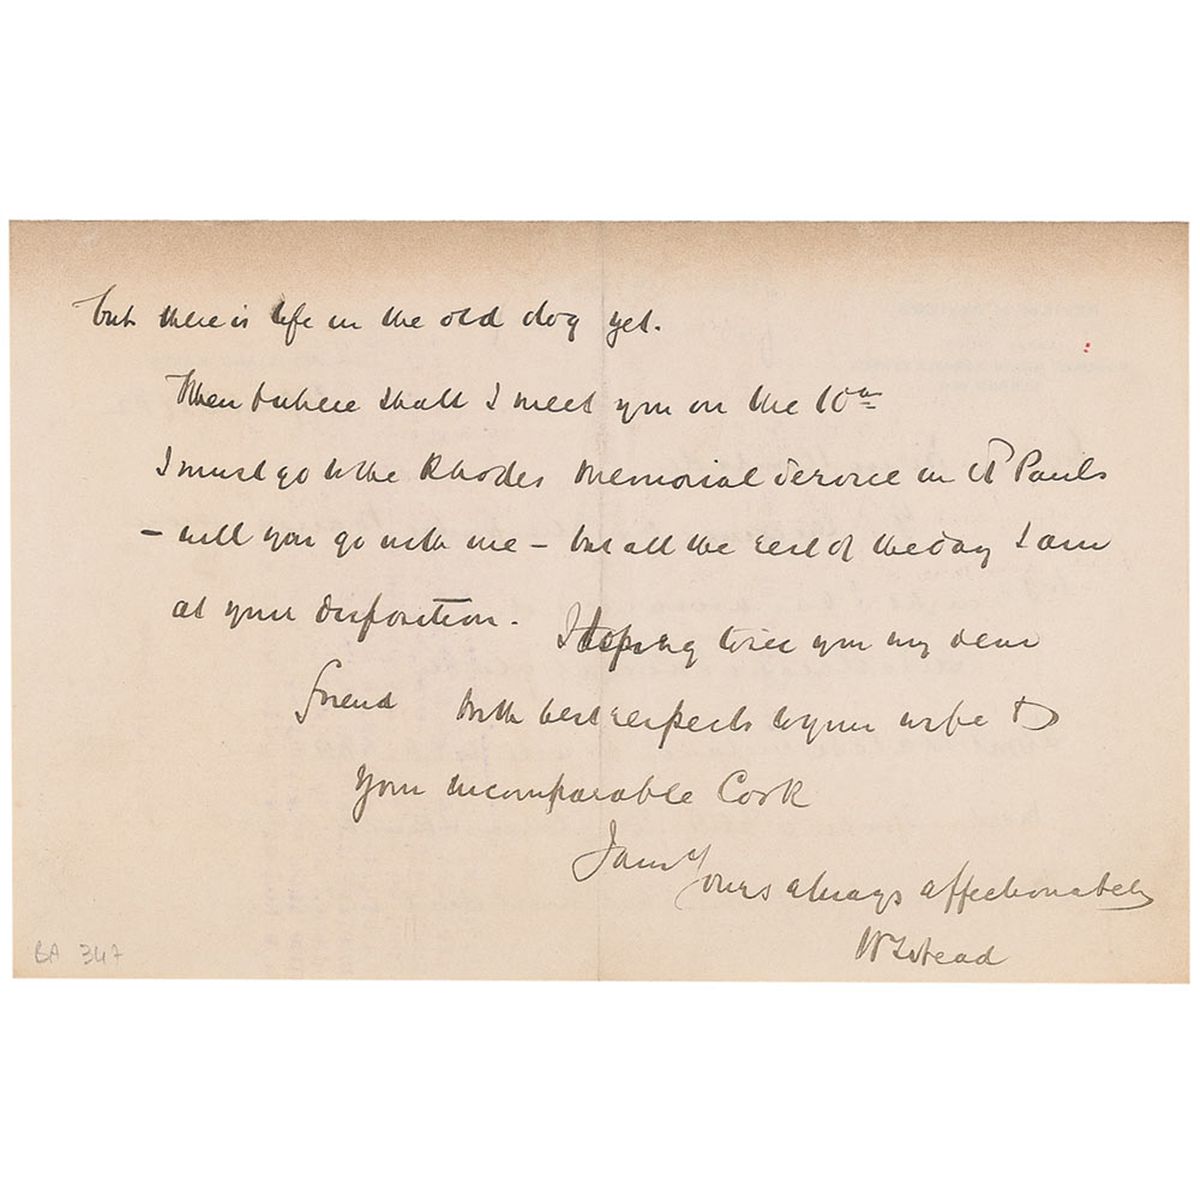 but there is life in the old dog yet.
When & where shall I meet you on the 10th
I must go to the Rhodes Memorial Service in St Pauls
– will you go with me – but all the rest of the day I am
at your disposition. Hoping to see you my dear
friend With best respects to your wife &
your incomparable Cook
I am Yours always affectionately
W T Stead
BA 347